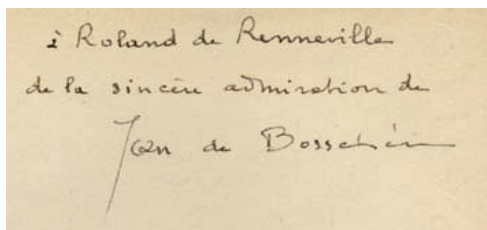 à Roland de Renneville
de la sincère admiration de
Jean de Bosschère